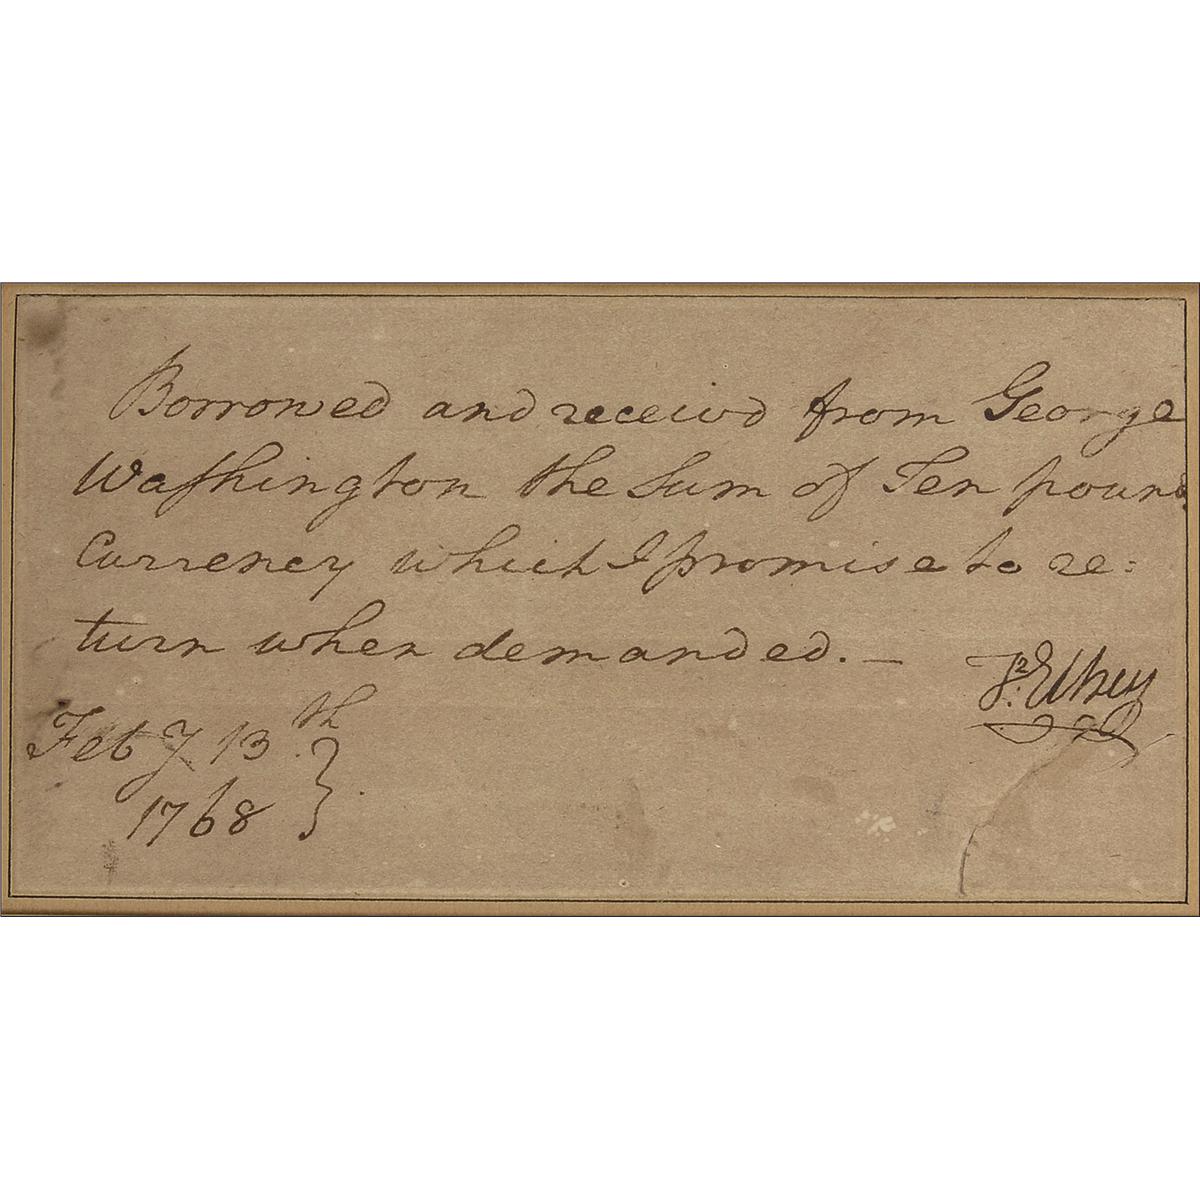 Borrowed and receivd from George
Waſhington the Sum of Ten pound
Currency which I promise to re:
turn when demanded. —
Feby 13th
1768